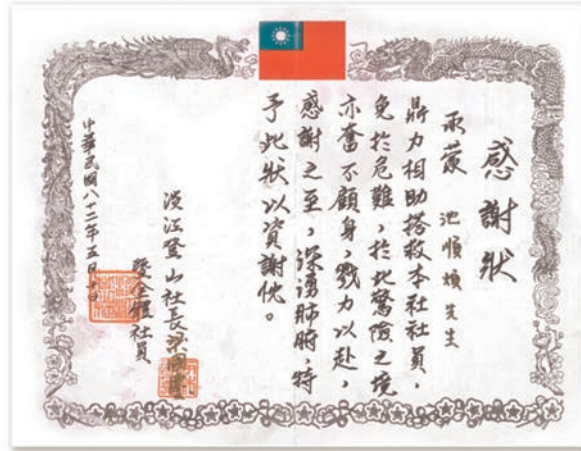 感謝狀
承蒙 池順煩先生
鼎力相助搭救本社社員，
免於危難，於此驚險之境
亦奮不顧身，戮力以赴，
感謝之至，深湧肺腑，特
予此狀以資謝忱。
淡江登山社長梁國
暨全體社員
中華民國八十二年五月十日